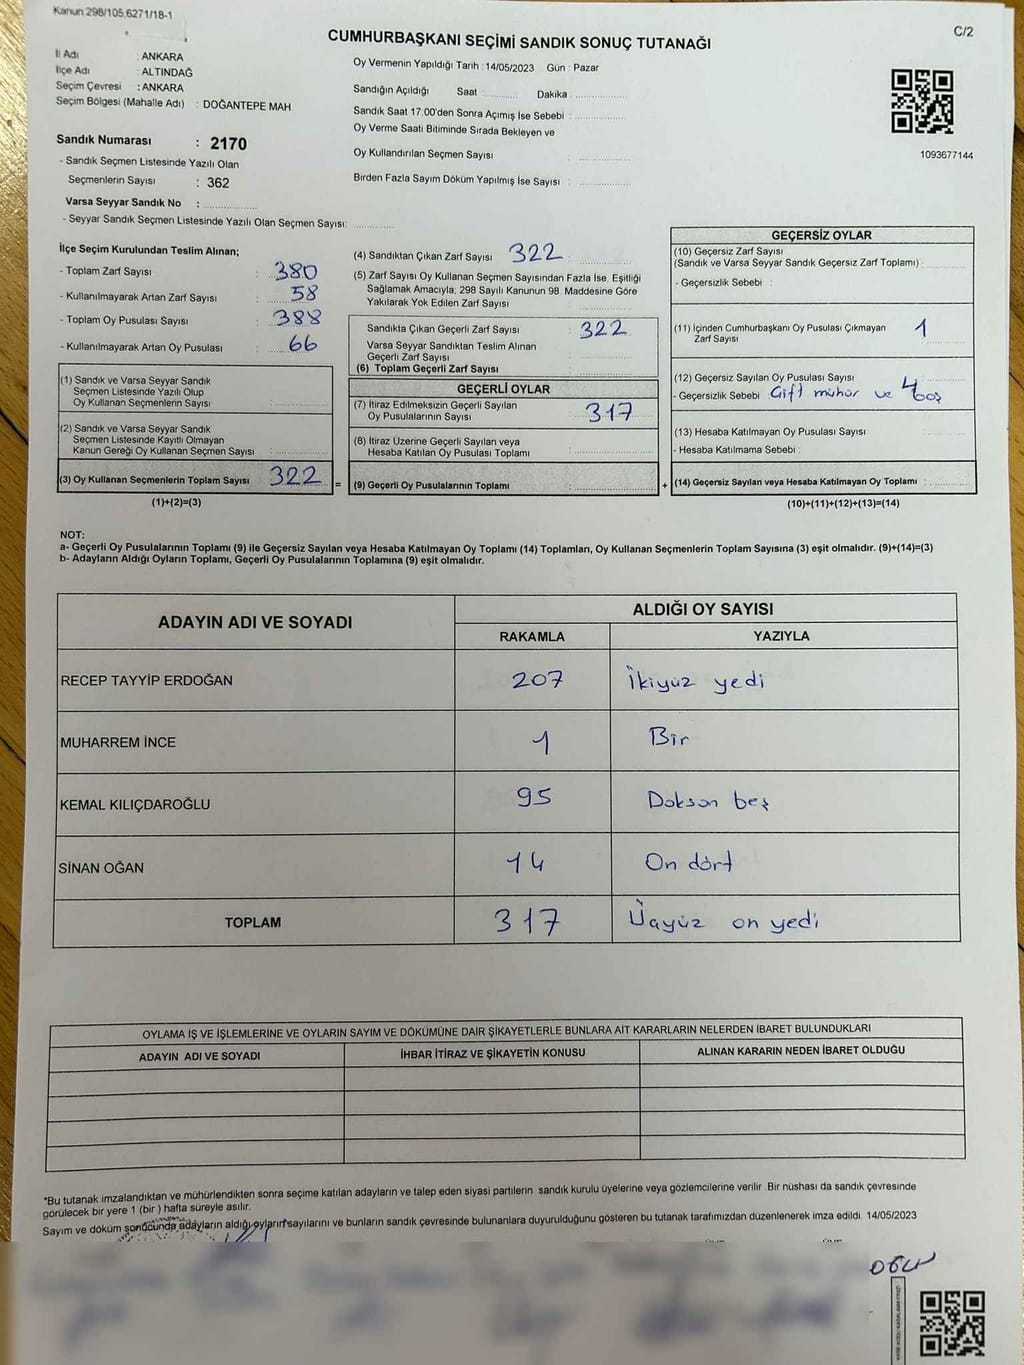 Kanun:298/105,6271/18-1
C/2
CUMHURBAŞKANI SEÇİMİ SANDIK SONUÇ TUTANAĞI
İl Adı : ANKARA
İlçe Adı : ALTINDAĞ
Seçim Çevresi : ANKARA
Seçim Bölgesi (Mahalle Adı) : DOĞANTEPE MAH
Oy Vermenin Yapıldığı Tarih : 14/05/2023 Gün : Pazar
Sandığın Açıldığı Saat : Dakika :
Sandık Saat 17:00'den Sonra Açımış İse Sebebi :
Oy Verme Saati Bitiminde Sırada Bekleyen ve
Oy Kullandırılan Seçmen Sayısı :
Birden Fazla Sayım Döküm Yapılmış İse Sayısı :
1093677144
Sandık Numarası : 2170
- Sandık Seçmen Listesinde Yazılı Olan
Seçmenlerin Sayısı : 362
Varsa Seyyar Sandık No :
- Seyyar Sandık Seçmen Listesinde Yazılı Olan Seçmen Sayısı:
İlçe Seçim Kurulundan Teslim Alınan;
- Toplam Zarf Sayısı : 380
- Kullanılmayarak Artan Zarf Sayısı : 58
- Toplam Oy Pusulası Sayısı : 388
- Kullanılmayarak Artan Oy Pusulası : 66
(1) Sandık ve Varsa Seyyar Sandık
Seçmen Listesinde Yazılı Olup
Oy Kullanan Seçmenlerin Sayısı :
(2) Sandık ve Varsa Seyyar Sandık
Seçmen Listesinde Kayıtlı Olmayan
Kanun Gereği Oy Kullanan Seçmen Sayısı :
(3) Oy Kullanan Seçmenlerin Toplam Sayısı 322
(1)+(2)=(3)
=
(4) Sandıktan Çıkan Zarf Sayısı : 322
(5) Zarf Sayısı Oy Kullanan Seçmen Sayısından Fazla İse, Eşitliği
Sağlamak Amacıyla, 298 Sayılı Kanunun 98. Maddesine Göre
Yakılarak Yok Edilen Zarf Sayısı :
Sandıkta Çıkan Geçerli Zarf Sayısı : 322
Varsa Seyyar Sandıktan Teslim Alınan
Geçerli Zarf Sayısı :
(6) Toplam Geçerli Zarf Sayısı :
GEÇERLİ OYLAR
(7) İtiraz Edilmeksizin Geçerli Sayılan
Oy Pusulalarının Sayısı : 317
(8) İtiraz Üzerine Geçerli Sayılan veya
Hesaba Katılan Oy Pusulası Toplamı :
(9) Geçerli Oy Pusulalarının Toplamı :
+
GEÇERSİZ OYLAR
(10) Geçersiz Zarf Sayısı
(Sandık ve Varsa Seyyar Sandık Geçersiz Zarf Toplamı) :
- Geçersizlik Sebebi :
(11) İçinden Cumhurbaşkanı Oy Pusulası Çıkmayan 1
Zarf Sayısı :
(12) Geçersiz Sayılan Oy Pusulası Sayısı : 4
- Geçersizlik Sebebi : Çift mühür ve boş
(13) Hesaba Katılmayan Oy Pusulası Sayısı
- Hesaba Katılmama Sebebi :
(14) Geçersiz Sayılan veya Hesaba Katılmayan Oy Toplamı :
(10)+(11)+(12)+(13)=(14)
NOT:
a- Geçerli Oy Pusulalarının Toplamı (9) ile Geçersiz Sayılan veya Hesaba Katılmayan Oy Toplamı (14) Toplamları, Oy Kullanan Seçmenlerin Toplam Sayısına (3) eşit olmalıdır. (9)+(14)=(3)
b- Adayların Aldığı Oyların Toplamı, Geçerli Oy Pusulalarının Toplamına (9) eşit olmalıdır.
ADAYIN ADI VE SOYADI
ALDIĞI OY SAYISI
RAKAMLA YAZIYLA
RECEP TAYYİP ERDOĞAN 207 İkiyüz yedi
MUHARREM İNCE 1 Bir
KEMAL KILIÇDAROĞLU 95 Doksan beş
SİNAN OĞAN 14 On dört
TOPLAM 317 Üçyüz on yedi
OYLAMA İŞ VE İŞLEMLERİNE VE OYLARIN SAYIM VE DÖKÜMÜNE DAİR ŞİKAYETLERLE BUNLARA AİT KARARLARIN NELERDEN İBARET BULUNDUKLARI
ADAYIN ADI VE SOYADI İHBAR İTİRAZ VE ŞİKAYETİN KONUSU ALINAN KARARIN NEDEN İBARET OLDUĞU
*Bu tutanak imzalandıktan ve mühürlendikten sonra seçime katılan adayların ve talep eden siyasi partilerin sandık kurulu üyelerine veya gözlemcilerine verilir .Bir nüshası da sandık çevresinde
görülecek bir yere 1 (bir ) hafta süreyle asılır.
Sayım ve döküm sonucunda adayların aldığı oyların sayılarını ve bunların sandık çevresinde bulunanlara duyurulduğunu gösteren bu tutanak tarafımızdan düzenlenerek imza edildi. 14/05/2023